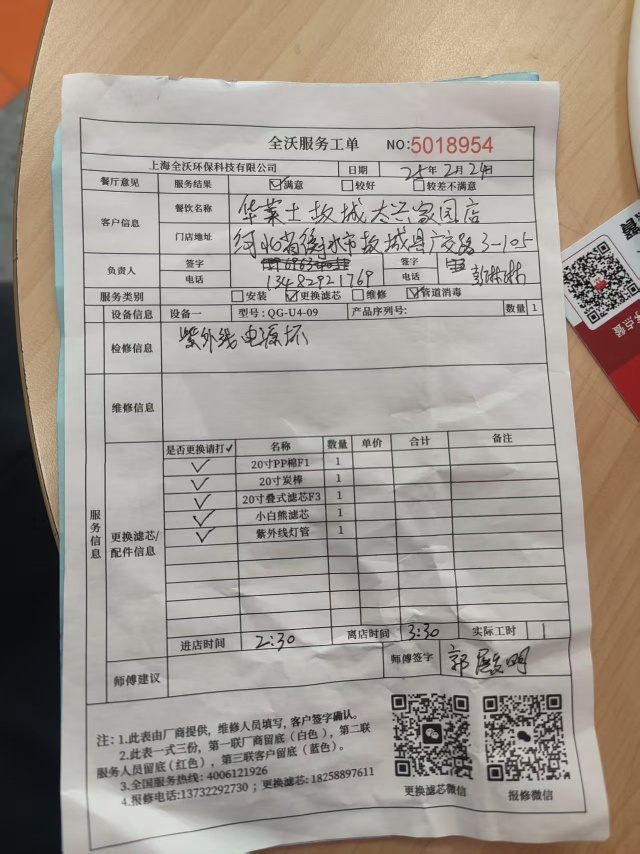 全沃服务工单 NO:5018954
上海全沃环保科技有限公司 日期 25年2月24日
餐厅意见 服务结果 ☑满意 □较好 □较差不满意
客户信息 餐饮名称 华莱士故城太兴家园店
门店地址 河北省衡水市故城县广交路3-105
负责人 签字 签字 郭琳琳
电话 13482921769 电话
服务类别 □安装 ☑更换滤芯 □维修 ☑管道消毒
设备信息 设备一 型号:QG-U4-09 产品序列号: 数量 1
检修信息 紫外线电源坏
维修信息
服务信息
更换滤芯/配件信息
是否更换请打✓ 名称 数量 单价 合计 备注
✓ 20寸PP棉F1 1
✓ 20寸炭棒 1
✓ 20寸叠式滤芯F3 1
✓ 小白熊滤芯 1
✓ 紫外线灯管 1
进店时间 2:30 离店时间 3:30 实际工时 1
师傅建议 师傅签字 郭 明
注: 1.此表由厂商提供，维修人员填写，客户签字确认。
2.此表一式三份，第一联厂商留底(白色)，第二联
服务人员留底(红色)，第三联客户留底(蓝色)。
3.全国服务热线: 4006121926
4.报修电话:13732292730 ; 更换滤芯: 18258897611
更换滤芯微信 报修微信
点餐